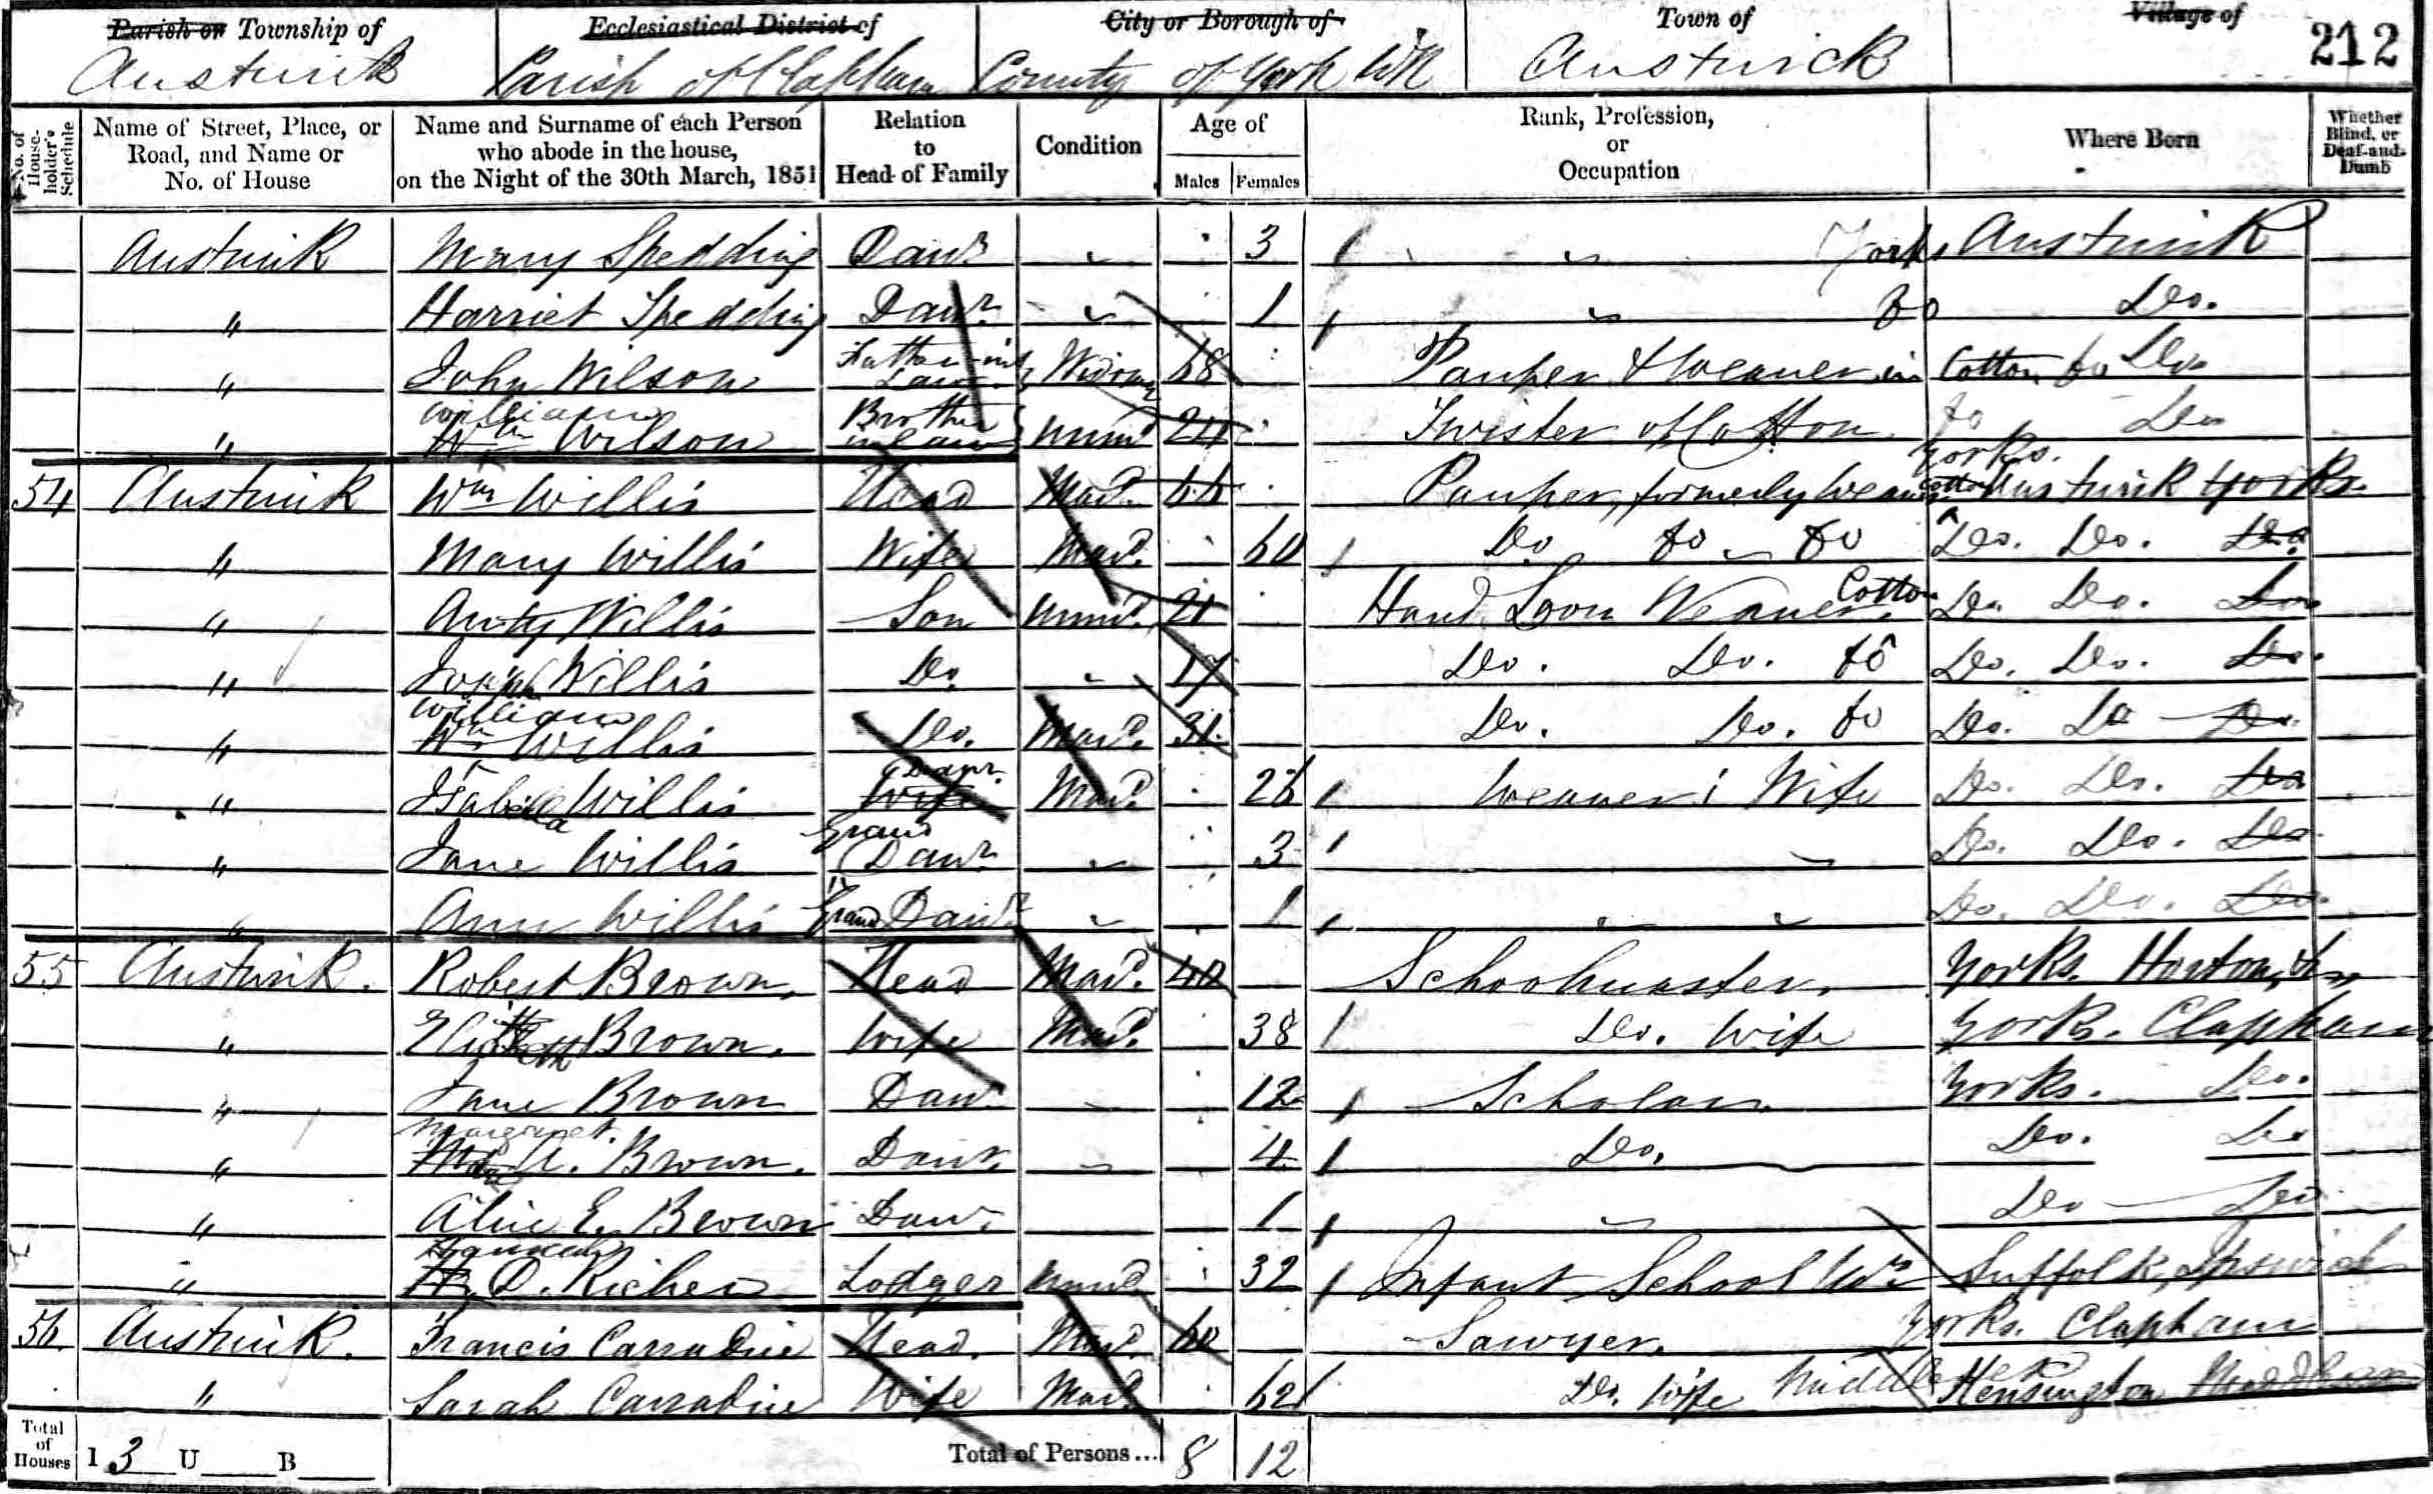 Parish or Township of
Austwick
Ecclesiastical District of
Parish of Clapham
City or Borough of
County of York WR
Town of
Austwick
Village of
212
No. of House-holder's Schedule
Name of Street, Place, or Road, and Name or No. of House
Name and Surname of each Person who abode in the house, on the Night of the 30th March, 1851
Relation to Head of Family
Condition
Age of
Males
Females
Rank, Profession, or Occupation
Where Born
Whether Blind, or Deaf-and-Dumb
Austwick Mary Spedding Daur 3 Yorks Austwick
" Harriet Spedding Daur 1 Do Do.
" John Wilson Father-in-Law Widowr 68 Pauper & Weaver in Cotton Do Do
" William Wm Wilson Brother in law Unmd 24 Twister of Cotton Do Do
54 Austwick Wm Willis Head Mard. 66 Pauper, formerly Weaver Cotton Yorks. Austwick Yorks.
" Mary Willis Wife Mard. 60 Do Do Do Do. Do. Do.
" Anty Willis Son Unmd. 21 Hand Loom Weaver. Cotton Do. Do. Do
" Joseph Willis Do. 17 Do. Do. Do Do. Do. Do.
" William Wm Willis Do. Mard. 31 Do. Do. Do Do. Do Do.
" Isabella Willis Daur. Wife Mard. 26 Weaver's Wife Do. Do. Do
" Jane Willis Grand Daur 3 Do. Do. Do
" Ann Willis Grand Daur 1 Do. Do. Do.
55 Austwick. Robert Brown. Head Mard. 40 Schoolmaster. Yorks. Horton,
" Brown. Wife Mard. 38 Do. Wife Yorks. Clapham
" Jane Brown Daur 12 Scholar. Yorks. Do.
" Margaret A. Brown. Daur. 4 Do. Do. Do
" Alice E. Brown Daur. 1 Do Do
" Hannah H. D. Riches Lodger Unmd 32 Infant School Mrs Suffolk, Ipswich
56 Austwick. Francis Carradice Head. Mard. 60 Sawyer. Yorks. Clapham
" Sarah Carradice Wife Mard. 62 Do. Wife Middlesex Kensington
Total of Houses 1 3 U B Total of Persons... 8 12